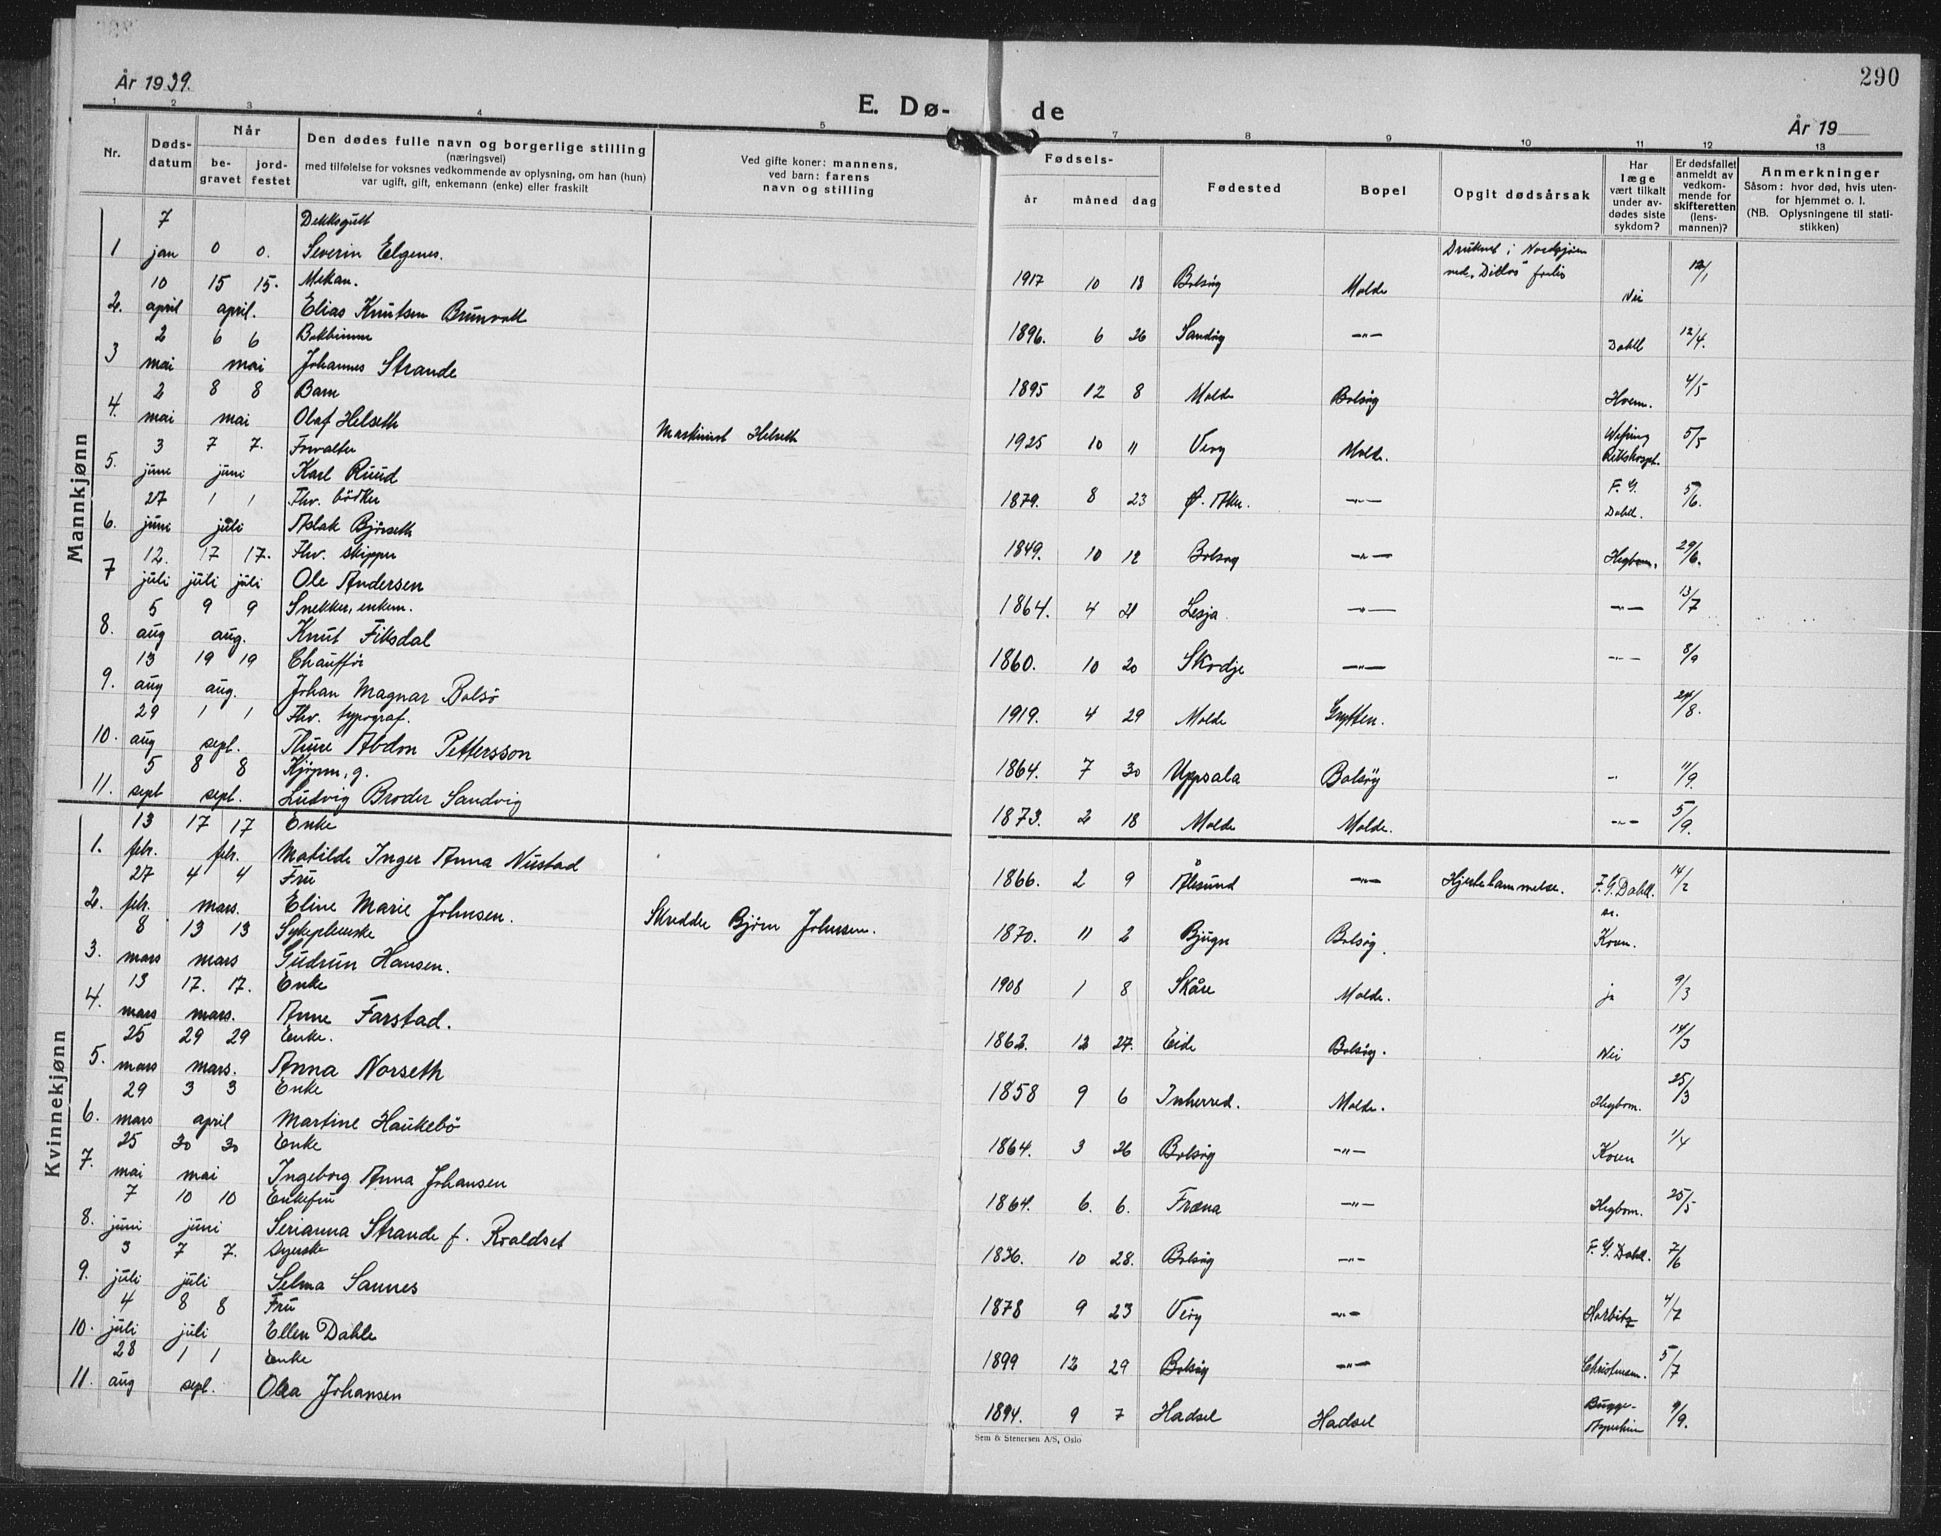 290
År 1939.
E. Dø- de
År 19
1 2 3 4 5 7 8 9 10 11 12 13
Nr.
Døds-
datum
Når
be-
gravet
jord-
festet
Den dødes fulle navn og borgerlige stilling
(næringsvei)
med tilføielse for voksnes vedkommende av oplysning, om han (hun)
var ugift, gift, enkemann (enke) eller fraskilt
Ved gifte koner: mannens,
ved barn: farens
navn og stilling
Fødsels-
år måned dag
Fødested
Bopel
Opgit dødsårsak
Har
læge
vært tilkalt
under av-
dødes siste
sykdom?
Er dødsfallet
anmeldt av
vedkom-
mende for
skifteretten
(lens-
mannen)?
Anmerkninger
Såsom: hvor død, hvis uten-
for hjemmet o. l.
(NB. Oplysningene til stati-
stikken)
Mannkjønn
7 Dekksgutt
1 jan 0 0. Severin Elgenes. 1917 10 18 Bolsøy Molde Druknet i Nordsjøen ved "Ditlos" forlis Nei 12/1
10 15 15. Mekan.
2. april april. Elias Knutsen Brunvoll 1896. 6 26 Sandøy —"— Dahll 12/4.
2 6 6 Bokbinner
3 mai mai Johannes Strande 1895 12 8 Molde Bolsøy Hvem. 4/5
2 8 8 Barn
4. mai mai Olaf Helseth Maskinist Helseth 1925 10 11 Veøy Molde. Rikshospt. 5/5
3 7 7. Forvalter
5. june juni Karl Ruud 1879. 8 23 Ø. Aker. —"— F. G. Dahll. 5/6.
27 1 1 Fhv. bödker
6. june juli Aslak Bjørseth 1849. 10 12 Bolsøy —"— Hegbom. 29/6.
12. 17 17. Fhv. skipper
7 juli juli juli Ole Andersen 1864. 4 21 Lesja. —"— —"— 13/7
5 9 9 Snekker, enkem.
8. aug aug. Knut Fiksdal 1860. 10 20 Skodje —"— —"— 8/9
13 19 19 Chauffør
9. aug aug. Johan Magnar Bolsø 1919. 4 29 Molde Grytten. 24/8.
29 1 1 Fhv. typograf.
10. aug sept. Thure Abdon Pettersson 1864. 7 30 Uppsala Bolsøy " 11/9.
5 8 8 Kjøpm, g.
11. sept sept. Ludvig Broder Sandvig 1873. 2 18 Molde Molde. —"— 5/9.
Kvinnekjønn
13 17 17 Enke
1. febr. febr. Matilde Inger Anna Nustad 1866. 2 9 Ålesund —"— Hjertelammelse. F. G. Dahll. sr. 14/2
27 4 4 Fru
2. febr. mars. Eline Marie Johnsen. Skredder Bjørn Johnsen. 1870. 11 2 Bjugn Bolsøy. Koren.
8 13 13 Sykepleierske
3. mars mars Gudrun Hansen. 1908 1 8 Skåre Molde. ja 9/3
13 17. 17. Enke
4. mars mars. Anne Farstad. 1862. 12 27. Eide Bolsøy. Nei 14/3
25 29 29 Enke.
5. mars mars. Anna Norseth 1858 9 6 Inherred. Molde. Hegbom. 25/3
29 3 3 Enke
6. mars april Martine Haukebø 1864. 3 26 Bolsøy —"— Koren 1/4
25 30 30 Enke
7. mai mai Ingeborg Anna Johansen 1864. 6. 6. Fræna —"— Hegbom. 25/5
7 10 10 Enkefru
8. juni juni Serianna Strande f. Roaldset 1836. 10 28. Bolsøy —"— F. G. Dahll. 7/6
3 7 7. Syerske
9. juli juli Selma Sannes 1878 9 23 Veøy —"— Harbitz 4/7
4 8 8 Fru
10. juli juli Ellen Dahle 1899 12 29 Bolsøy —"— Christensen. 5/7
28 1 1 Enke
11. aug sept. Olea Johansen 1894. 9 7 Hadsel Hadsel Bugge- 9/9.
Sem & Stenersen A/S, Oslo